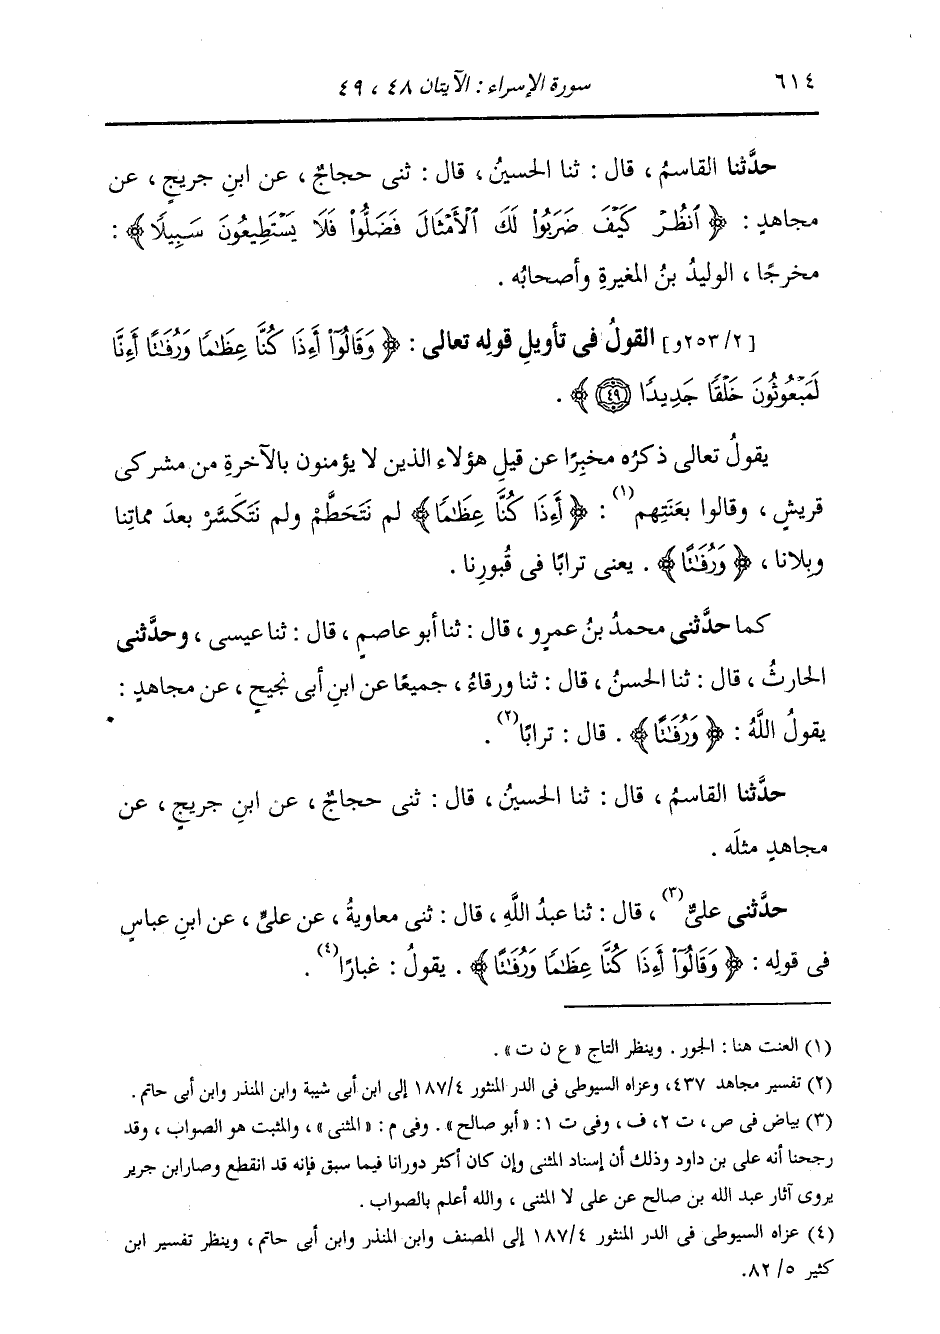 ٦١٤ سورة الإسراء : الآيتان ٤٨ ، ٤٩
حدَّثنا القاسمُ ، قال : ثنا الحسينُ ، قال : ثنى حجاجٌ ، عن ابنِ جريجٍ ، عن
مجاهدٍ : ﴿ ٱنظُرْ كَيْفَ ضَرَبُوا۟ لَكَ ٱلْأَمْثَالَ فَضَلُّوا۟ فَلَا يَسْتَطِيعُونَ سَبِيلًا ﴾ :
مخرجًا ، الوليدُ بنُ المغيرةِ وأصحابُه .
[٢/ ٢٥٣و] القولُ فى تأويلِ قولِه تعالى : ﴿ وَقَالُوٓا۟ أَءِذَا كُنَّا عِظَـٰمًا وَرُفَـٰتًا أَءِنَّا
لَمَبْعُوثُونَ خَلْقًا جَدِيدًا ٤٩ ﴾ .
يقولُ تعالى ذكرُه مخبِرًا عن قيلِ هؤلاء الذين لا يؤمنون بالآخرةِ من مشركى
قريشٍ ، وقالوا بعَنَتِهم(١) : ﴿ أَءِذَا كُنَّا عِظَـٰمًا ﴾ لم نَتَحَطَّمْ ولم نَتَكَسَّرْ بعدَ مماتِنا
وبِلانا ، ﴿ وَرُفَـٰتًا ﴾ . يعنى ترابًا فى قُبورِنا .
كما حدَّثنى محمدُ بنُ عمرٍو ، قال : ثنا أبو عاصمٍ ، قال : ثنا عيسى ، وحدَّثنى
الحارثُ ، قال : ثنا الحسنُ ، قال : ثنا ورقاءُ ، جميعًا عن ابنِ أبى نجيحٍ ، عن مجاهدٍ :
يقولُ اللَّهُ : ﴿ وَرُفَـٰتًا ﴾ . قال : ترابًا(٢) .
حدَّثنا القاسمُ ، قال : ثنا الحسينُ ، قال : ثنى حجاجٌ ، عن ابنِ جريجٍ ، عن
مجاهدٍ مثلَه .
حدَّثنى علىٌّ(٣) ، قال : ثنا عبدُ اللَّهِ ، قال : ثنى معاويةُ ، عن علىٍّ ، عن ابنِ عباسٍ
فى قولِه : ﴿ وَقَالُوٓا۟ أَءِذَا كُنَّا عِظَـٰمًا وَرُفَـٰتًا ﴾ . يقولُ : غبارًا(٤) .
(١) العنت هنا : الجور . وينظر التاج « ع ن ت » .
(٢) تفسير مجاهد ٤٣٧، وعزاه السيوطى فى الدر المنثور ١٨٧/٤ إلى ابن أبى شيبة وابن المنذر وابن أبى حاتم .
(٣) بياض فى ص ، ت ٢، ف ، وفى ت ١: « أبو صالح » . وفى م : « المثنى » ، والمثبت هو الصواب ، وقد
رجحنا أنه على بن داود وذلك أن إسناد المثنى وإن كان أكثر دورانا فيما سبق فإنه قد انقطع وصار ابن جرير
يروى آثار عبد الله بن صالح عن على لا المثنى ، والله أعلم بالصواب .
(٤) عزاه السيوطى فى الدر المنثور ١٨٧/٤ إلى المصنف وابن المنذر وابن أبى حاتم ، وينظر تفسير ابن
كثير ٥/ ٨٢.